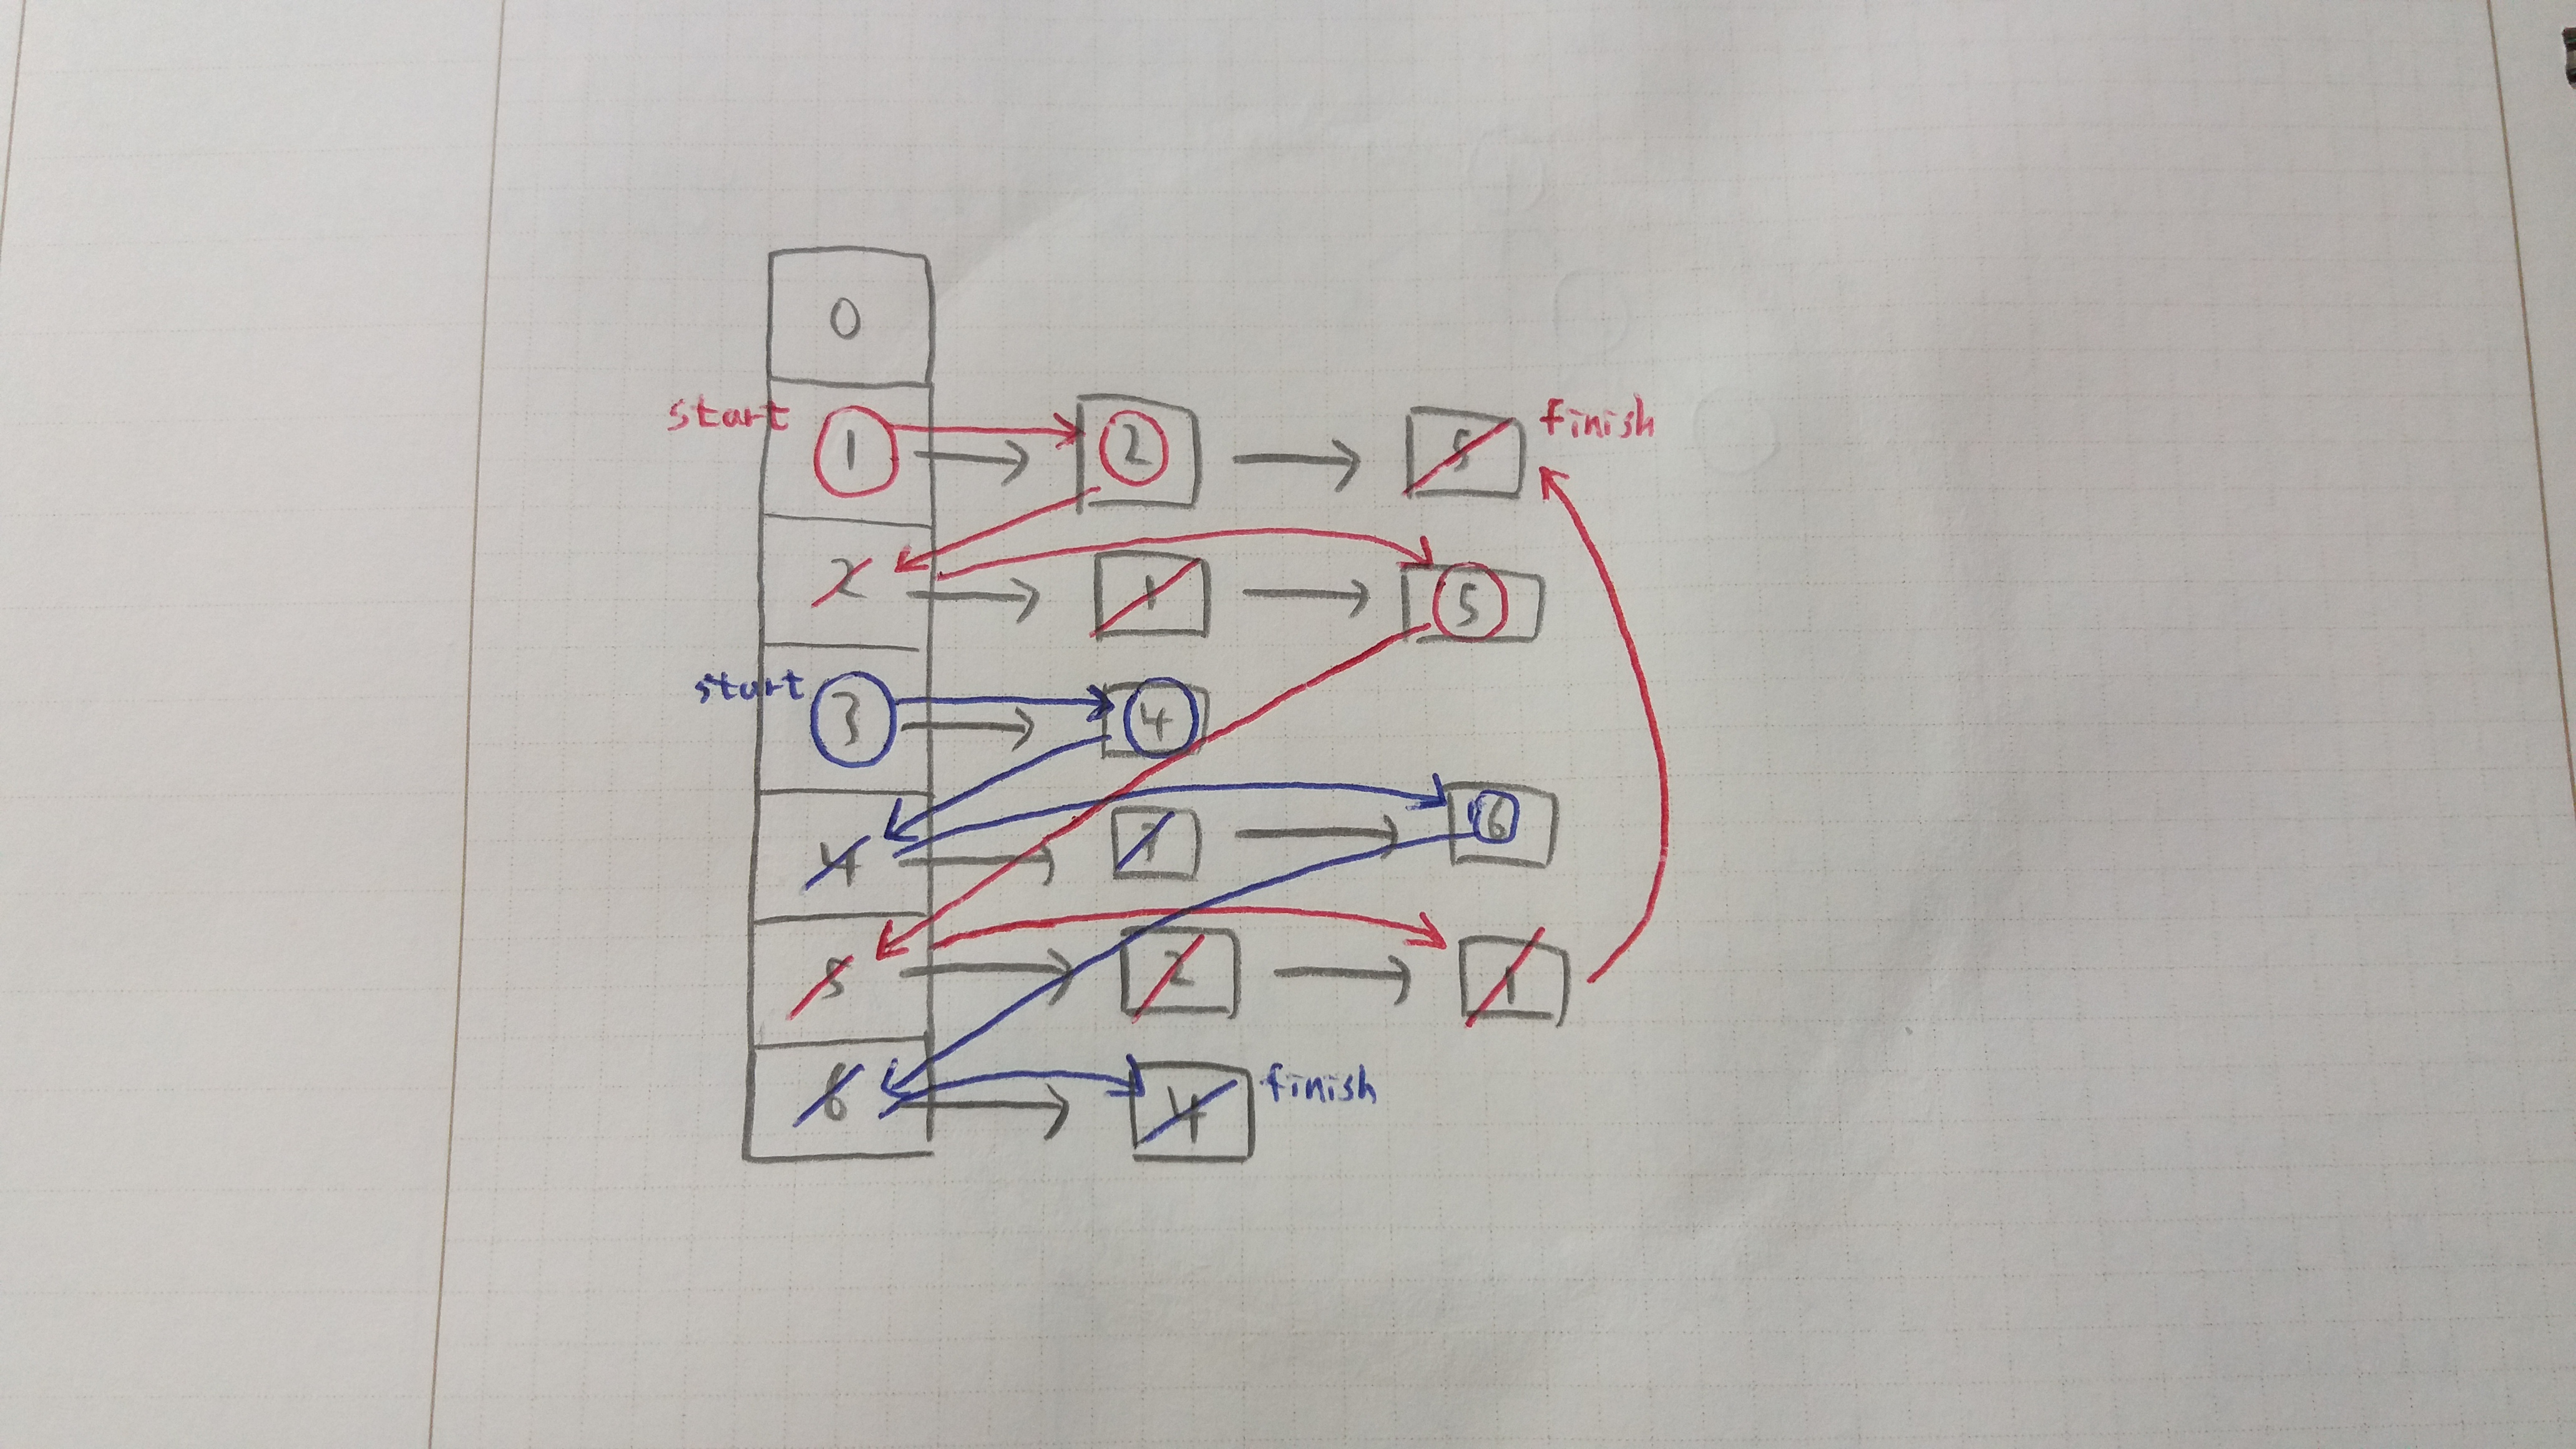 0
start 1 2 5 finish
2 1 5
start 3 4
4 3 6
5 2 1
6 4 finish